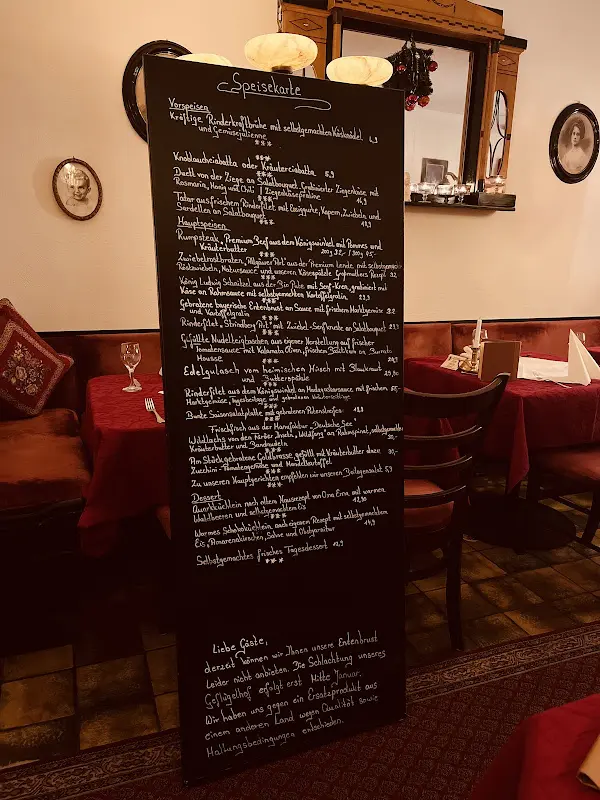 Speisekarte
Vorspeisen
Kräftige Rinderkraftbrühe mit selbstgemachtem Käsknödel 4,9
und Gemüsejulienne
***
***
Knoblauchciabatta oder Kräuterciabatta 5,9
***
Duett von der Ziege an Salatbouquet. Gratinierter Ziegenkäse mit
Rosmarin, Honig und Chili / Ziegenkäsepraline
***
Tatar aus frischem Rinderfilet mit Essiggurke, Kapern, Zwiebeln und
Sardellen an Salatbouquet
***
Hauptspeisen
Rumpsteak, Premium Beef aus dem Königswinkel mit Pommes und
Kräuterbutter 200 g 32,- / 300 g 45,-
***
Zwiebelrostbraten, "Allgäuer Art" aus der Premium Lende mit selbstgemachten
Röstzwiebeln, Natursauce und unseren Käsespätzle Großmutters Rezept 32
***
König Ludwig Schnitzel aus der Bio Pute mit Senf-Kren, gratiniert mit
Käse an Rahmsauce mit selbstgemachten Kartoffelgratin
***
Gebratene bayerische Entenbrust an Sauce mit frischem Marktgemüse
und Kartoffelgratin
***
Rinderfilet "Strindberg Art" mit Zwiebel-Senfkruste an Salatbouquet
***
Gefüllte Nudelteigtaschen aus eigener Herstellung auf frischer
Tomatensauce mit Kalamata Oliven, frischen Basilikum an Burrata
Mousse
***
Edelgulasch vom heimischen Hirsch mit Blaukraut
und Butterspätzle 29,90
***
Rinderfilet aus dem Königswinkel an Madagaskarsauce mit frischem
Marktgemüse, Tagesbeilage und gebratenen Kräuterseitlinge
***
Bunte Saisonsalatplatte mit gebratenen Putenstreifen
Frischfisch aus der Manufaktur "Deutsche See"
Wildlachs von den Färöer Inseln, "Wildfang" an Rahmspinat, selbstgemachter
Kräuterbutter und Bandnudeln 30,-
***
Am Stück gebratene Goldbrasse gefüllt mit Kräuterbutter dazu
Zucchini-Tomatengemüse und Mandelkartoffel 30,-
***
Zu unseren Hauptgerichten empfehlen wir unseren Beilagensalat 5,9
***
Dessert
Quarkküchlein nach altem Hausrezept von Oma Erna mit warmen
Waldbeeren und selbstgemachtem Eis 12,90
***
Warmes Schokoküchlein nach eigenem Rezept mit selbstgemachtem
Eis, Amarenakirschen, Sahne und Obstgarnitur 14,9
***
Selbstgemachtes frisches Tagesdessert 12,9
***
Liebe Gäste,
derzeit können wir Ihnen unsere Entenbrust
leider nicht anbieten. Die Schlachtung unseres
Geflügelhof erfolgt erst Mitte Januar.
Wir haben uns gegen ein Ersatzprodukt aus
einem anderen Land wegen Qualität sowie
Haltungsbedingungen entschieden.